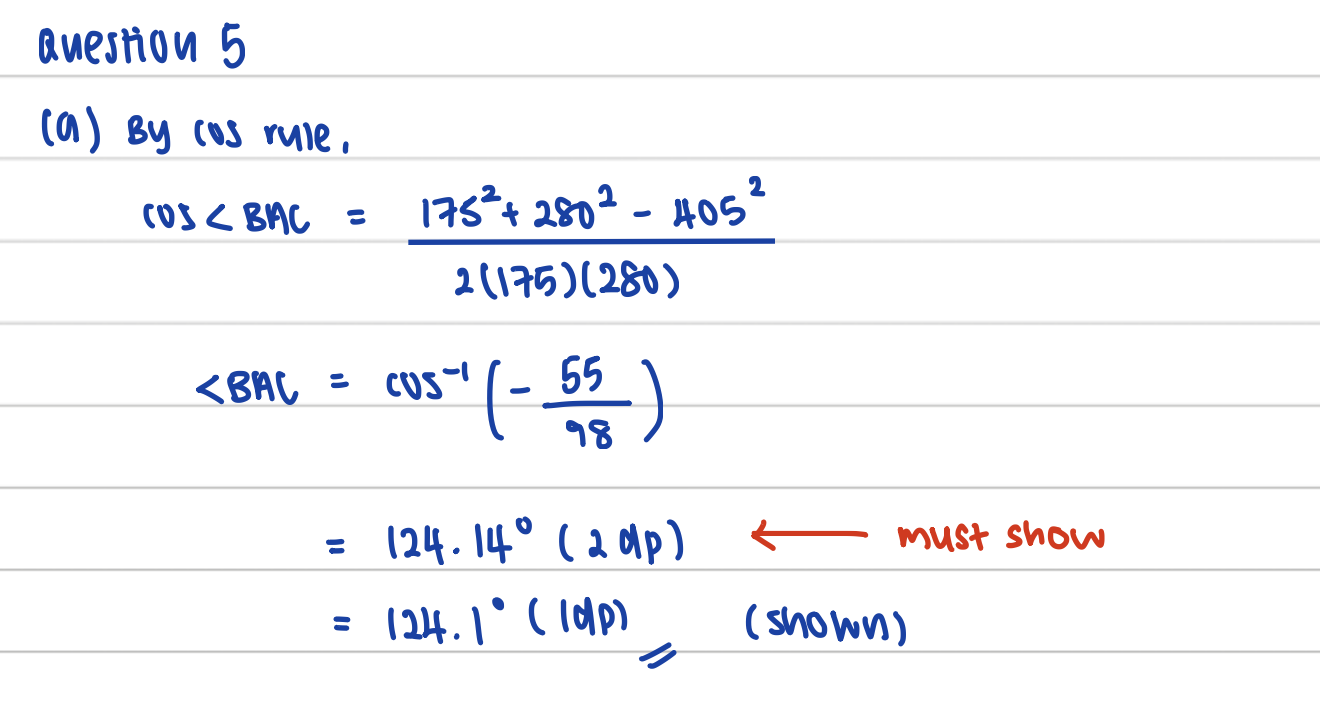 Question 5
(a) By cos rule,
cos < BAC = 175² + 280² - 405²
2(175)(280)
< BAC = cos⁻¹ (- 55/98)
= 124.14° (2 dp) ← must show
= 124.1° (1dp) (shown)